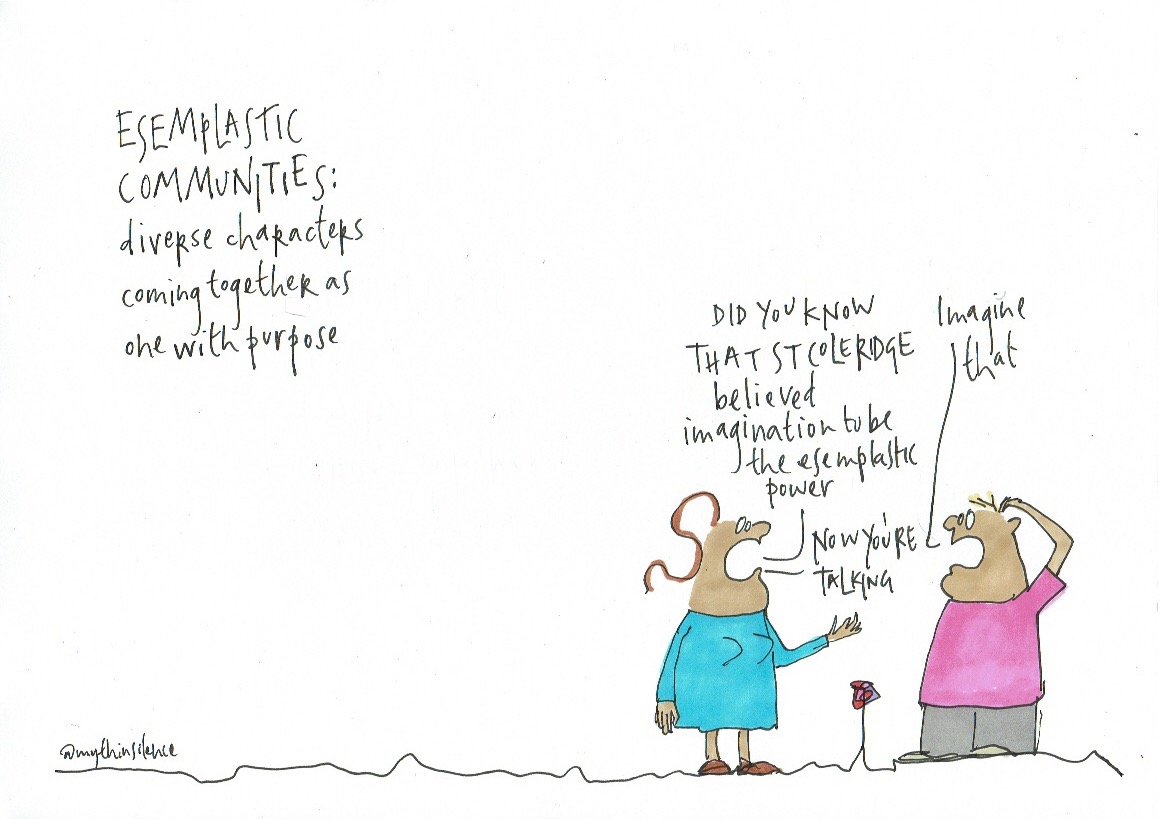 ESEMPLASTIC
COMMUNITIES:
diverse characters
coming together as
one with purpose
DID YOU KNOW
THAT ST COLERIDGE
believed
imagination to be
the esemplastic
power
Imagine
that
NOW YOU'RE
TALKING
@mythinsilence